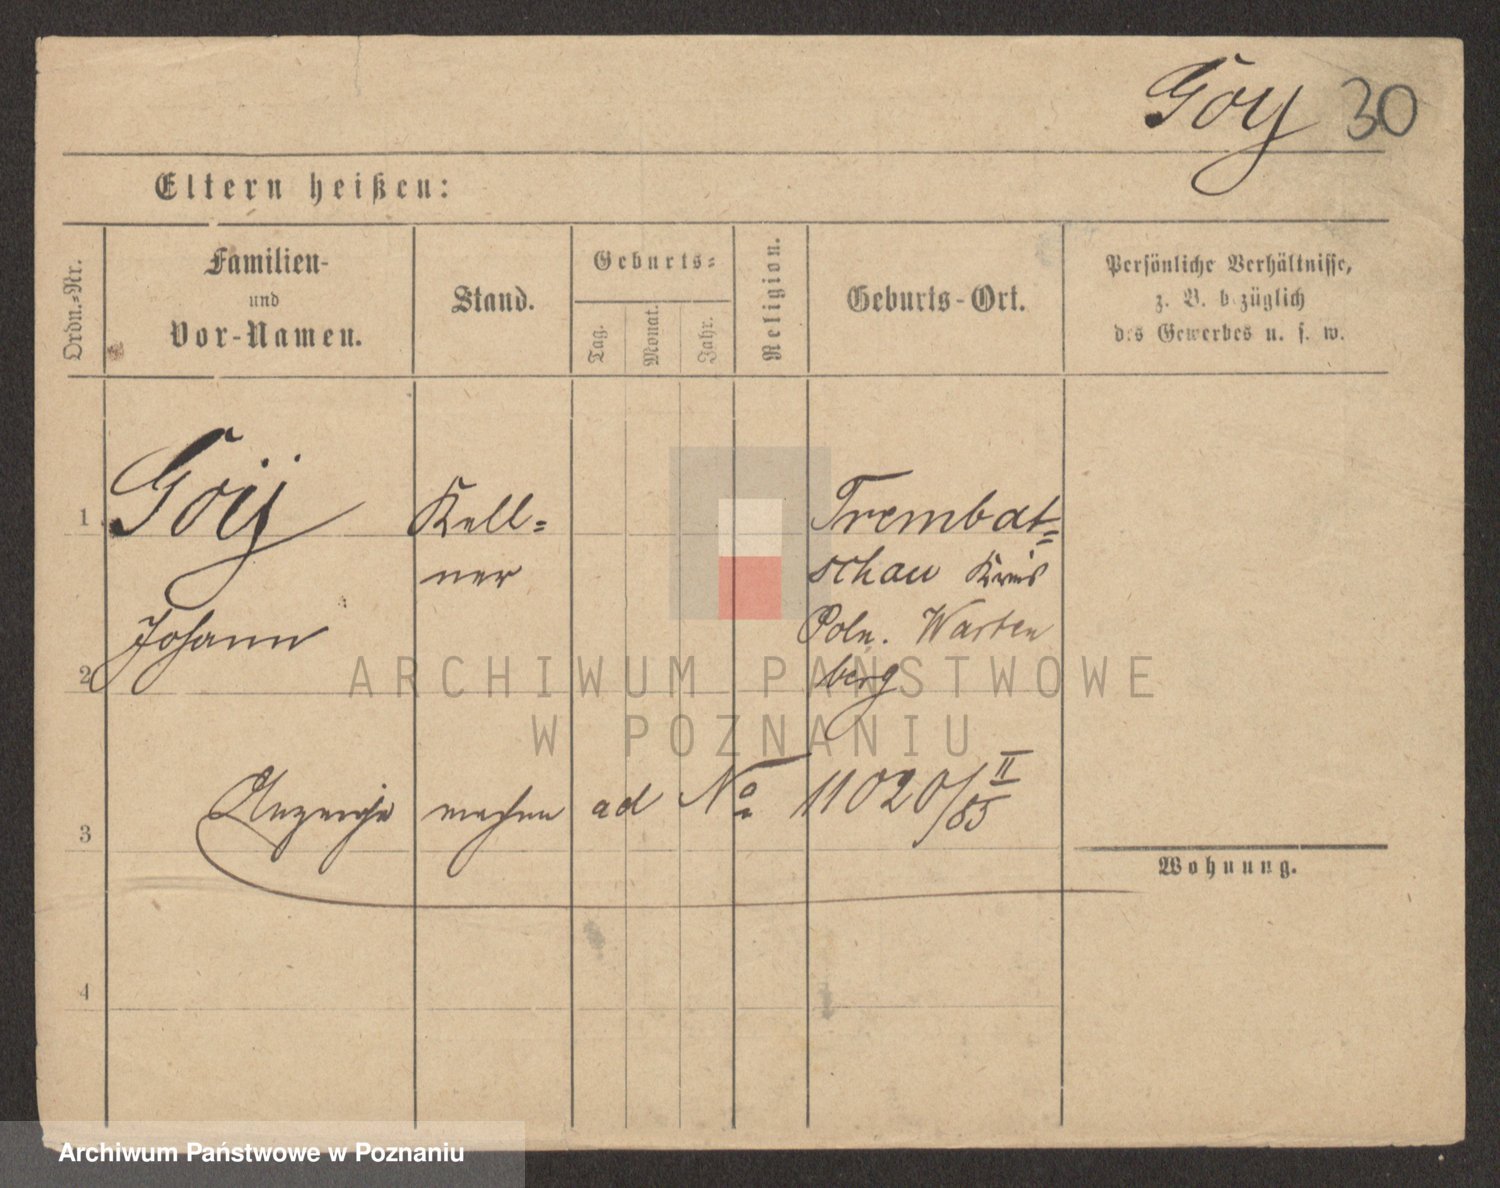 Goy 30
Eltern heißen:
Ordn.=Nr.
Familien-
und
Vor-Namen.
Stand.
Geburts=
Tag.
Monat.
Jahr.
Religion.
Geburts-Ort.
Persönliche Verhältnisse,
z. B. bezüglich
des Gewerbes u. s. w.
1
Goÿ
Johann
Kell=
ner
Trembat=
schau Kreis
Poln. Warten
berg
2
Anzeige machen ad No 11020/II 85
3
Wohnung.
4
ARCHIWUM PAŃSTWOWE
W POZNANIU
Archiwum Państwowe w Poznaniu